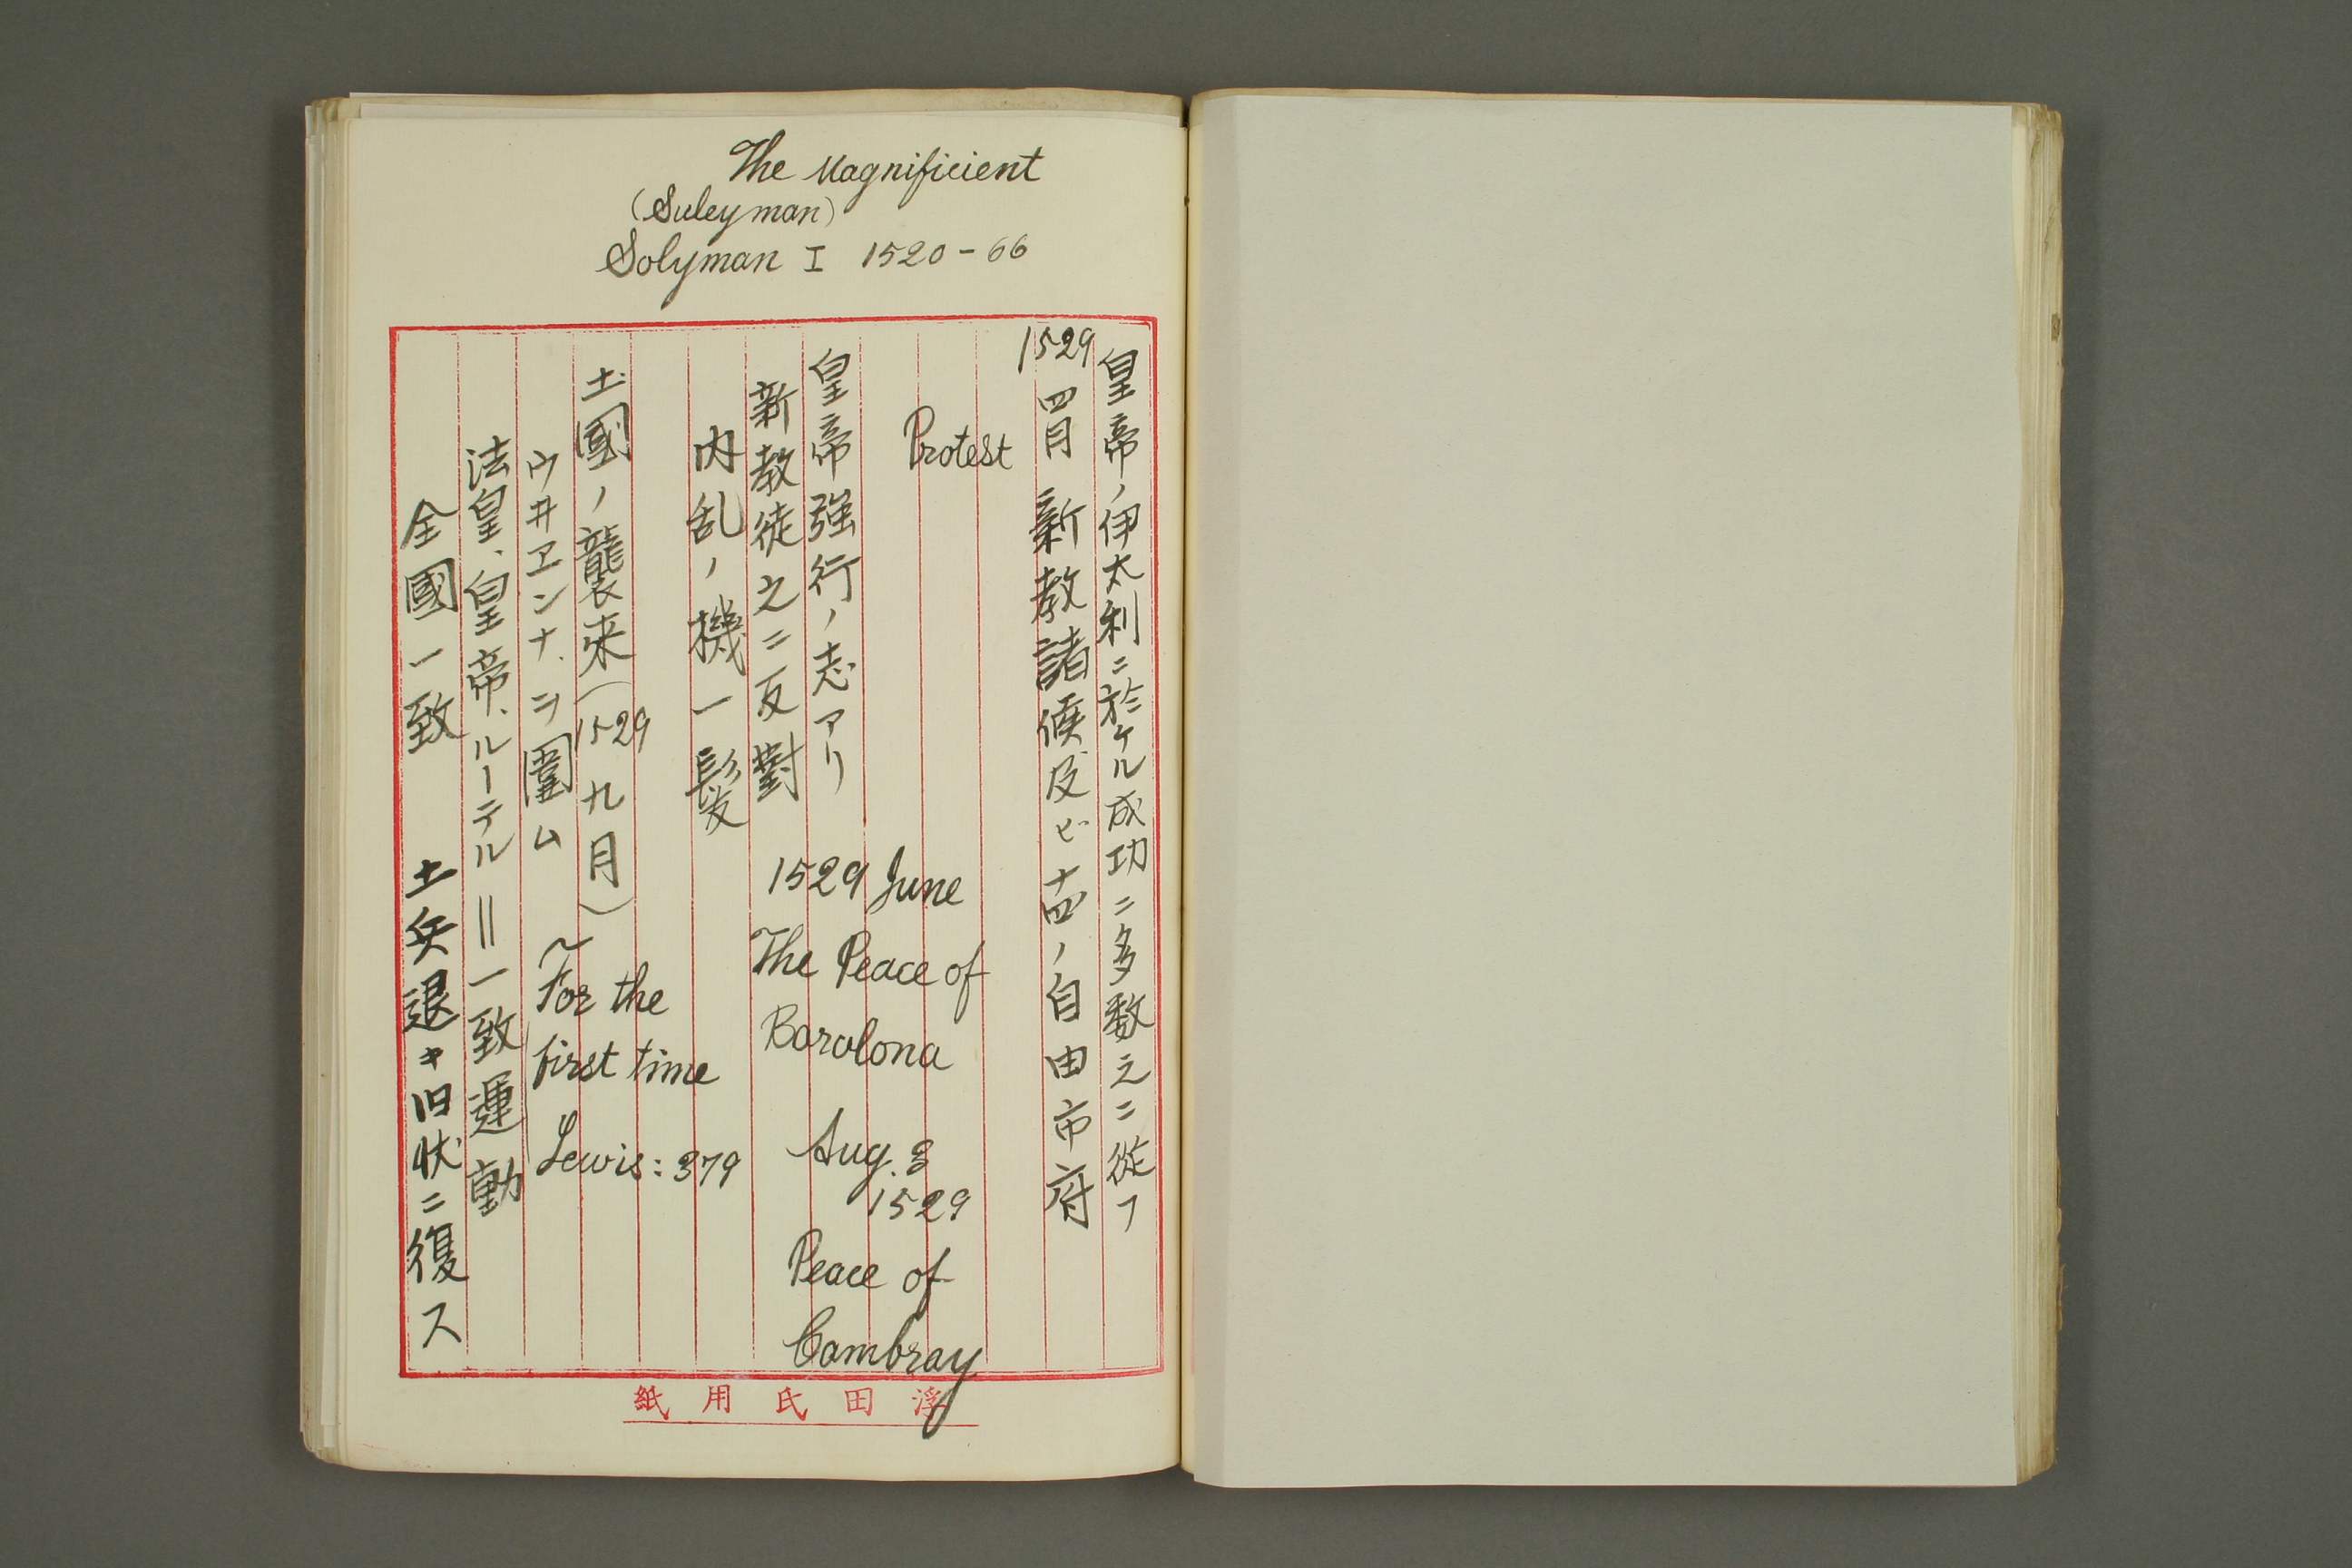 The Magnificient
(Suleyman)
Solyman I 1520-66
皇帝ノ伊太利ニ於ケル成功ニ多数之ニ従フ
1529 四月 新教諸侯及ビ十四ノ自由市府
Protest
皇帝強行ノ志アリ
新教徒之ニ反對
内乱ノ機一髪
1529 June
The Peace of
Barolona
Aug. 3
1529
Peace of
Cambray
土國ノ襲来(1529 九月)
ウヰエンナ、ヲ圍ム
For the
first time
Lewis: 379
法皇、皇帝、ルーテル＝一致運動
全國一致 土兵退キ旧状ニ復ス
浮田氏用紙